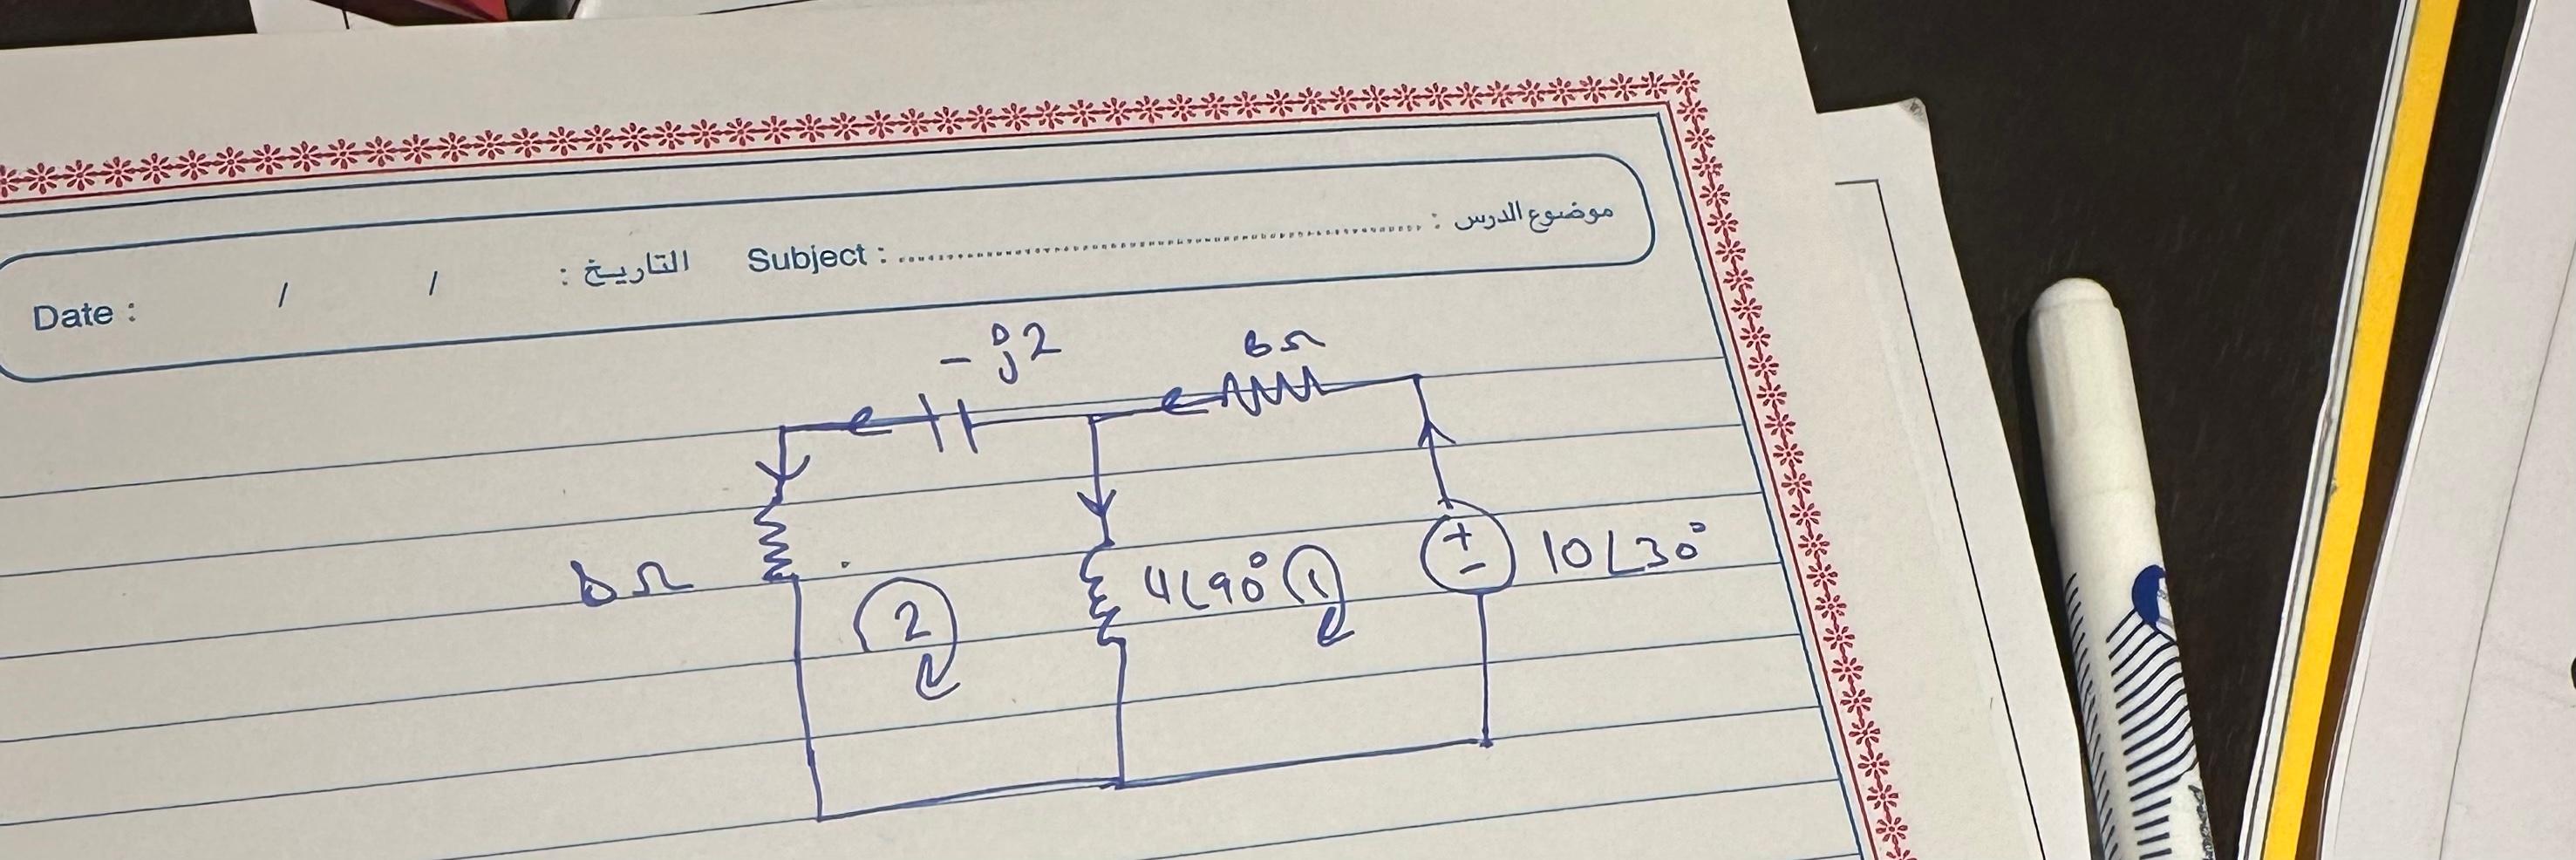 موضوع الدرس :
Subject :
التاريخ :
Date : / /
- j2
6Ω
6Ω
4∠90°
1
2
+
-
10∠30°